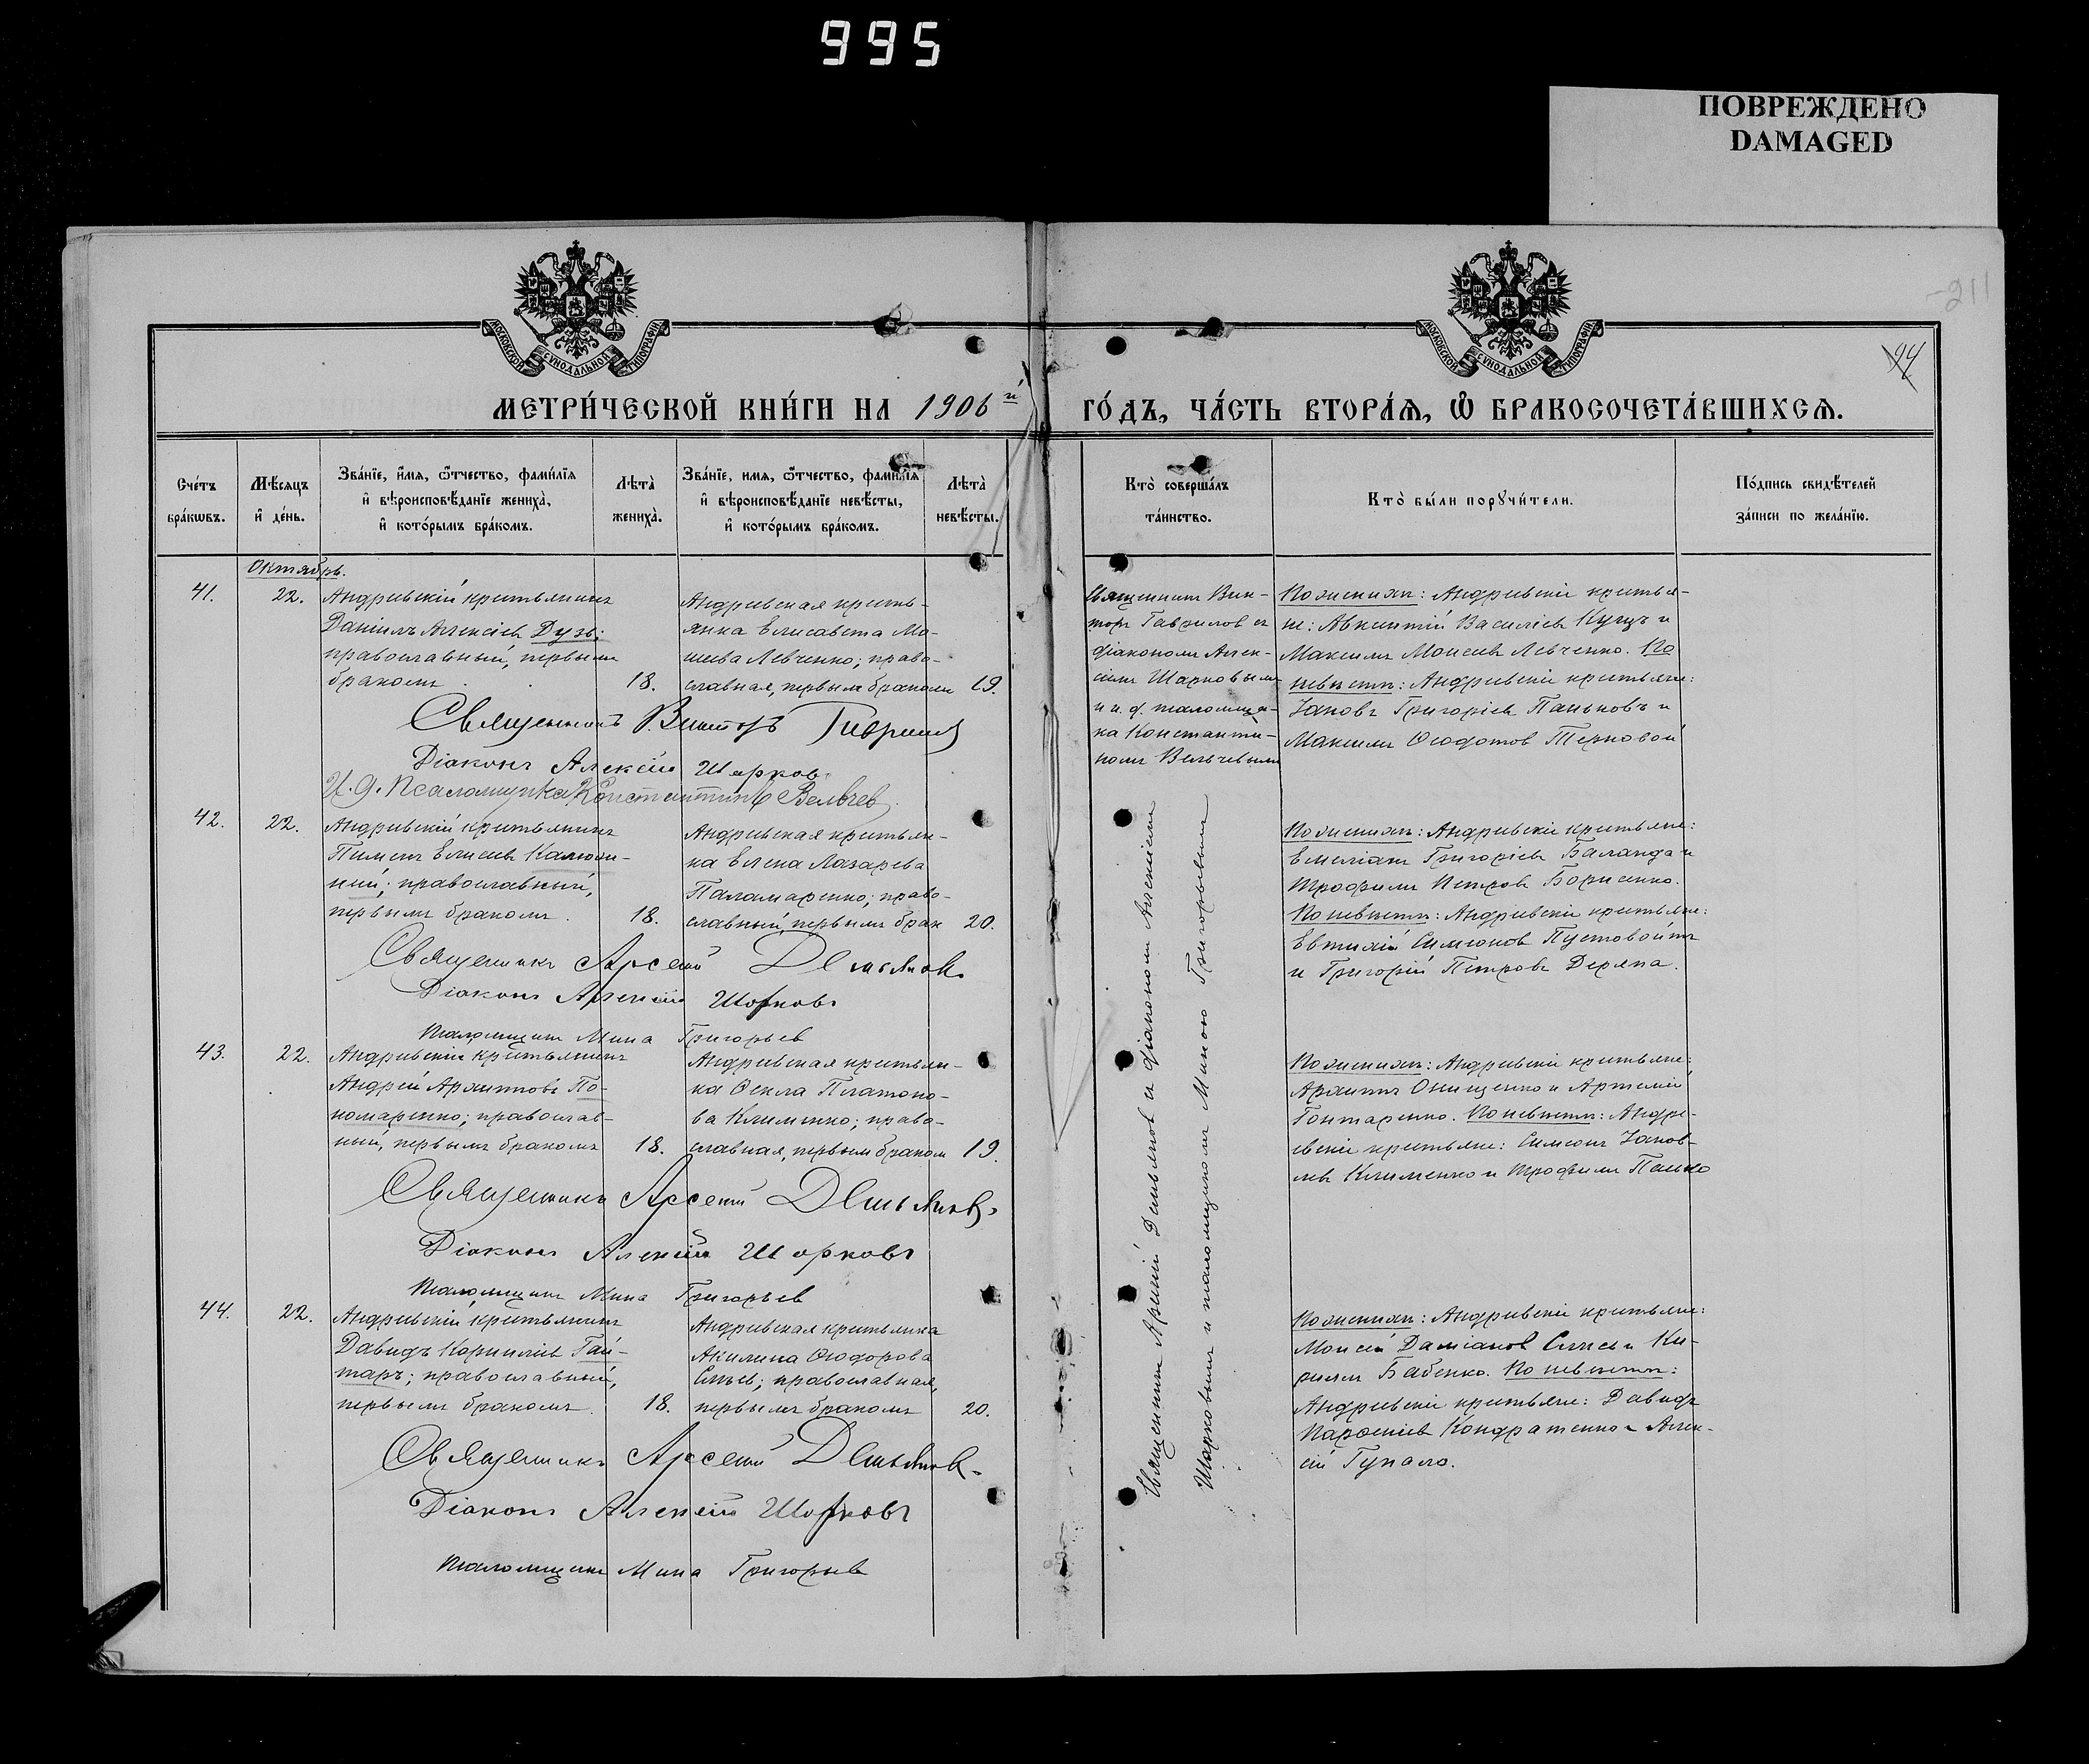 995
ПОВРЕЖДЕНО
DAMAGED
211
94
МОСКОВСКОЙ СѴНОДАЛЬНОЙ ТИПОГРАФІИ
МОСКОВСКОЙ СѴНОДАЛЬНОЙ ТИПОГРАФІИ
МЕТРИ́ЧЕСКОЙ КНИ́ГИ НА 1906й ГО́ДЪ, ЧА́СТЬ ВТОРА́Ѧ, Ѽ БРАКОСОЧЕТА́ВШИХСѦ.
Сче́тъ бра́кѡвъ.
Мѣ́сяцъ и де́нь.
Зва́нїе, и́мя, ѻ́тчество, фами́лїя и вѣроисповѣ́данїе жениха̀, и кото́рымъ бра́комъ.
Лѣта̀ жениха̀.
Зва́нїе, имя, ѻ́тчество, фами́лїя и вѣроисповѣ́данїе невѣ́сты, и кото́рымъ бра́комъ.
Лѣта̀ невѣ́сты.
Кто̀ соверша́лъ та́инство.
Кто̀ бы́ли порꙋчи́тели.
По́дпись свидѣ́телей за́писи по жела́нїю.
Октябрь.
41.
22.
Андреевскій крестьянинъ
Даніилъ Алексіевъ Дузь;
православный, первымъ
бракомъ
18.
Андреевская кресть-
янка Елисавета Мо-
исеева Левченко; право-
славная, первымъ бракомъ
19.
Священникъ Вик-
торъ Гаврилов съ
діакономъ Алек-
сіемъ Шарковымъ
и и. д. псаломщи-
ка Константи-
номъ Вельчевымъ
По женихѣ: Андреевскіе крестья-
не: Авксентій Василіевъ Куць и
Максимъ Моисеевъ Левченко. По
невѣстѣ: Андреевскіе крестьяне:
Іаковъ Григоріевъ Паньковъ и
Максимъ Ѳеодотовъ Терновой
Священникъ Викторъ Гаврилов
Діаконъ Алексій Шарков
И. д. Псаломщика Константинъ Вельчев.
42.
22.
Андреевскій крестьянинъ
Пименъ Елисеевъ Калюж-
ный; православный,
первымъ бракомъ.
18.
Андреевская крестьян-
ка Елена Лазарева
Паламаренко; право-
славный, первымъ брак
20.
По женихѣ: Андреевскіе крестьяне:
Емеліанъ Григоріевъ Баланда и
Трофимъ Петровъ Борисенко.
По невѣстѣ: Андреевскіе крестьяне:
Евтихій Симеонов Пустовойтъ
и Григорій Петровъ Деряпа.
Священникъ Арсеній Демьянов.
Діаконъ Алексій Шарковъ
Псаломщикъ Мина Григорьев
43.
22.
Андреевскій крестьянинъ
Андрей Архиповъ По-
номаренко; православ-
ный, первымъ бракомъ
18.
Андреевская крестьян-
ка Ѳекла Платоно-
ва Клименко; право-
славная, первым браком
19.
По женихѣ: Андреевскіе крестьяне:
Архипъ Онищенко и Артемій
Гонтаренко. По невѣстѣ: Андре-
евскіе крестьяне: Симеонъ Іаков-
левъ Клименко и Трофимъ Панько
Священникъ Арсеній Демьянов.
Діаконъ Алексій Шарковъ
Псаломщикъ Мина Григорьев
44.
22.
Андреевскій крестьянинъ
Давидъ Корниліевъ Гай-
таръ; православный,
первымъ бракомъ.
18.
Андреевская крестьянка
Акилина Ѳеодорова
православная,
первымъ бракомъ
20.
По женихѣ: Андреевскіе крестьяне:
Моисей Даміанов и Ки-
риллъ Бабенко. По невѣстѣ:
Андреевскіе крестьяне: Давидъ
Парѳеніевъ Кондратенко и Алек-
сій Гупало.
Священникъ Арсеній Демьянов.
Діаконъ Алексій Шарковъ
Псаломщикъ Мина Григорьев
Священникъ Арсеній Демьянов съ діакономъ Алексіемъ
Шарковымъ и псаломщикомъ Миною Григорьевымъ